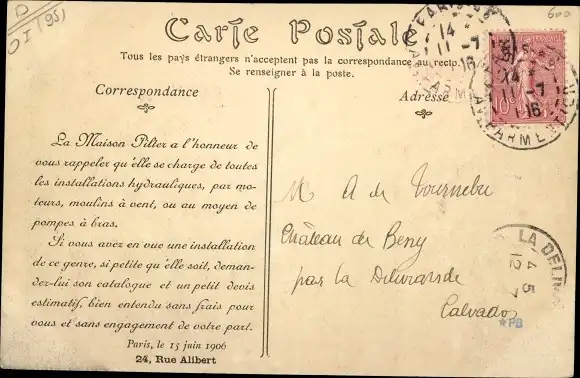 D
OI (95)
600
Carte Postale
Tous les pays étrangers n'acceptent pas la correspondance au recto.
Se renseigner à la poste.
Correspondance
Adresse
La Maison Pilter a l'honneur de
vous rappeler qu'elle se charge de toutes
les installations hydrauliques, par mo-
teurs, moulins à vent, ou au moyen de
pompes à bras.
Si vous avez en vue une installation
de ce genre, si petite qu'elle soit, deman-
dez-lui son catalogue et un petit devis
estimatif, bien entendu sans frais pour
vous et sans engagement de votre part.
Paris, le 15 juin 1906
24, Rue Alibert
M A de Tournebu
Château de Beny
par la Délivrande
Calvados
PARIS
14
11 - 7
16
14
11 - 7
16
AV. PARMENTIER
10
LA DELIV
4 5
12 7
*PB